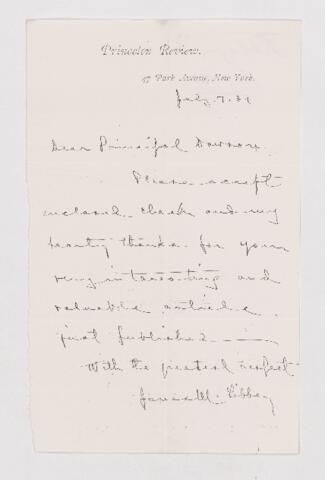 Princeton Review.
47 Park Avenue, New York.
July. 7. 81
Dear Principal Dawson.
Please accept
inclosed check and my
hearty thanks for your
very interesting and
valuable article
just published
With the greatest respect
James M. Libbey